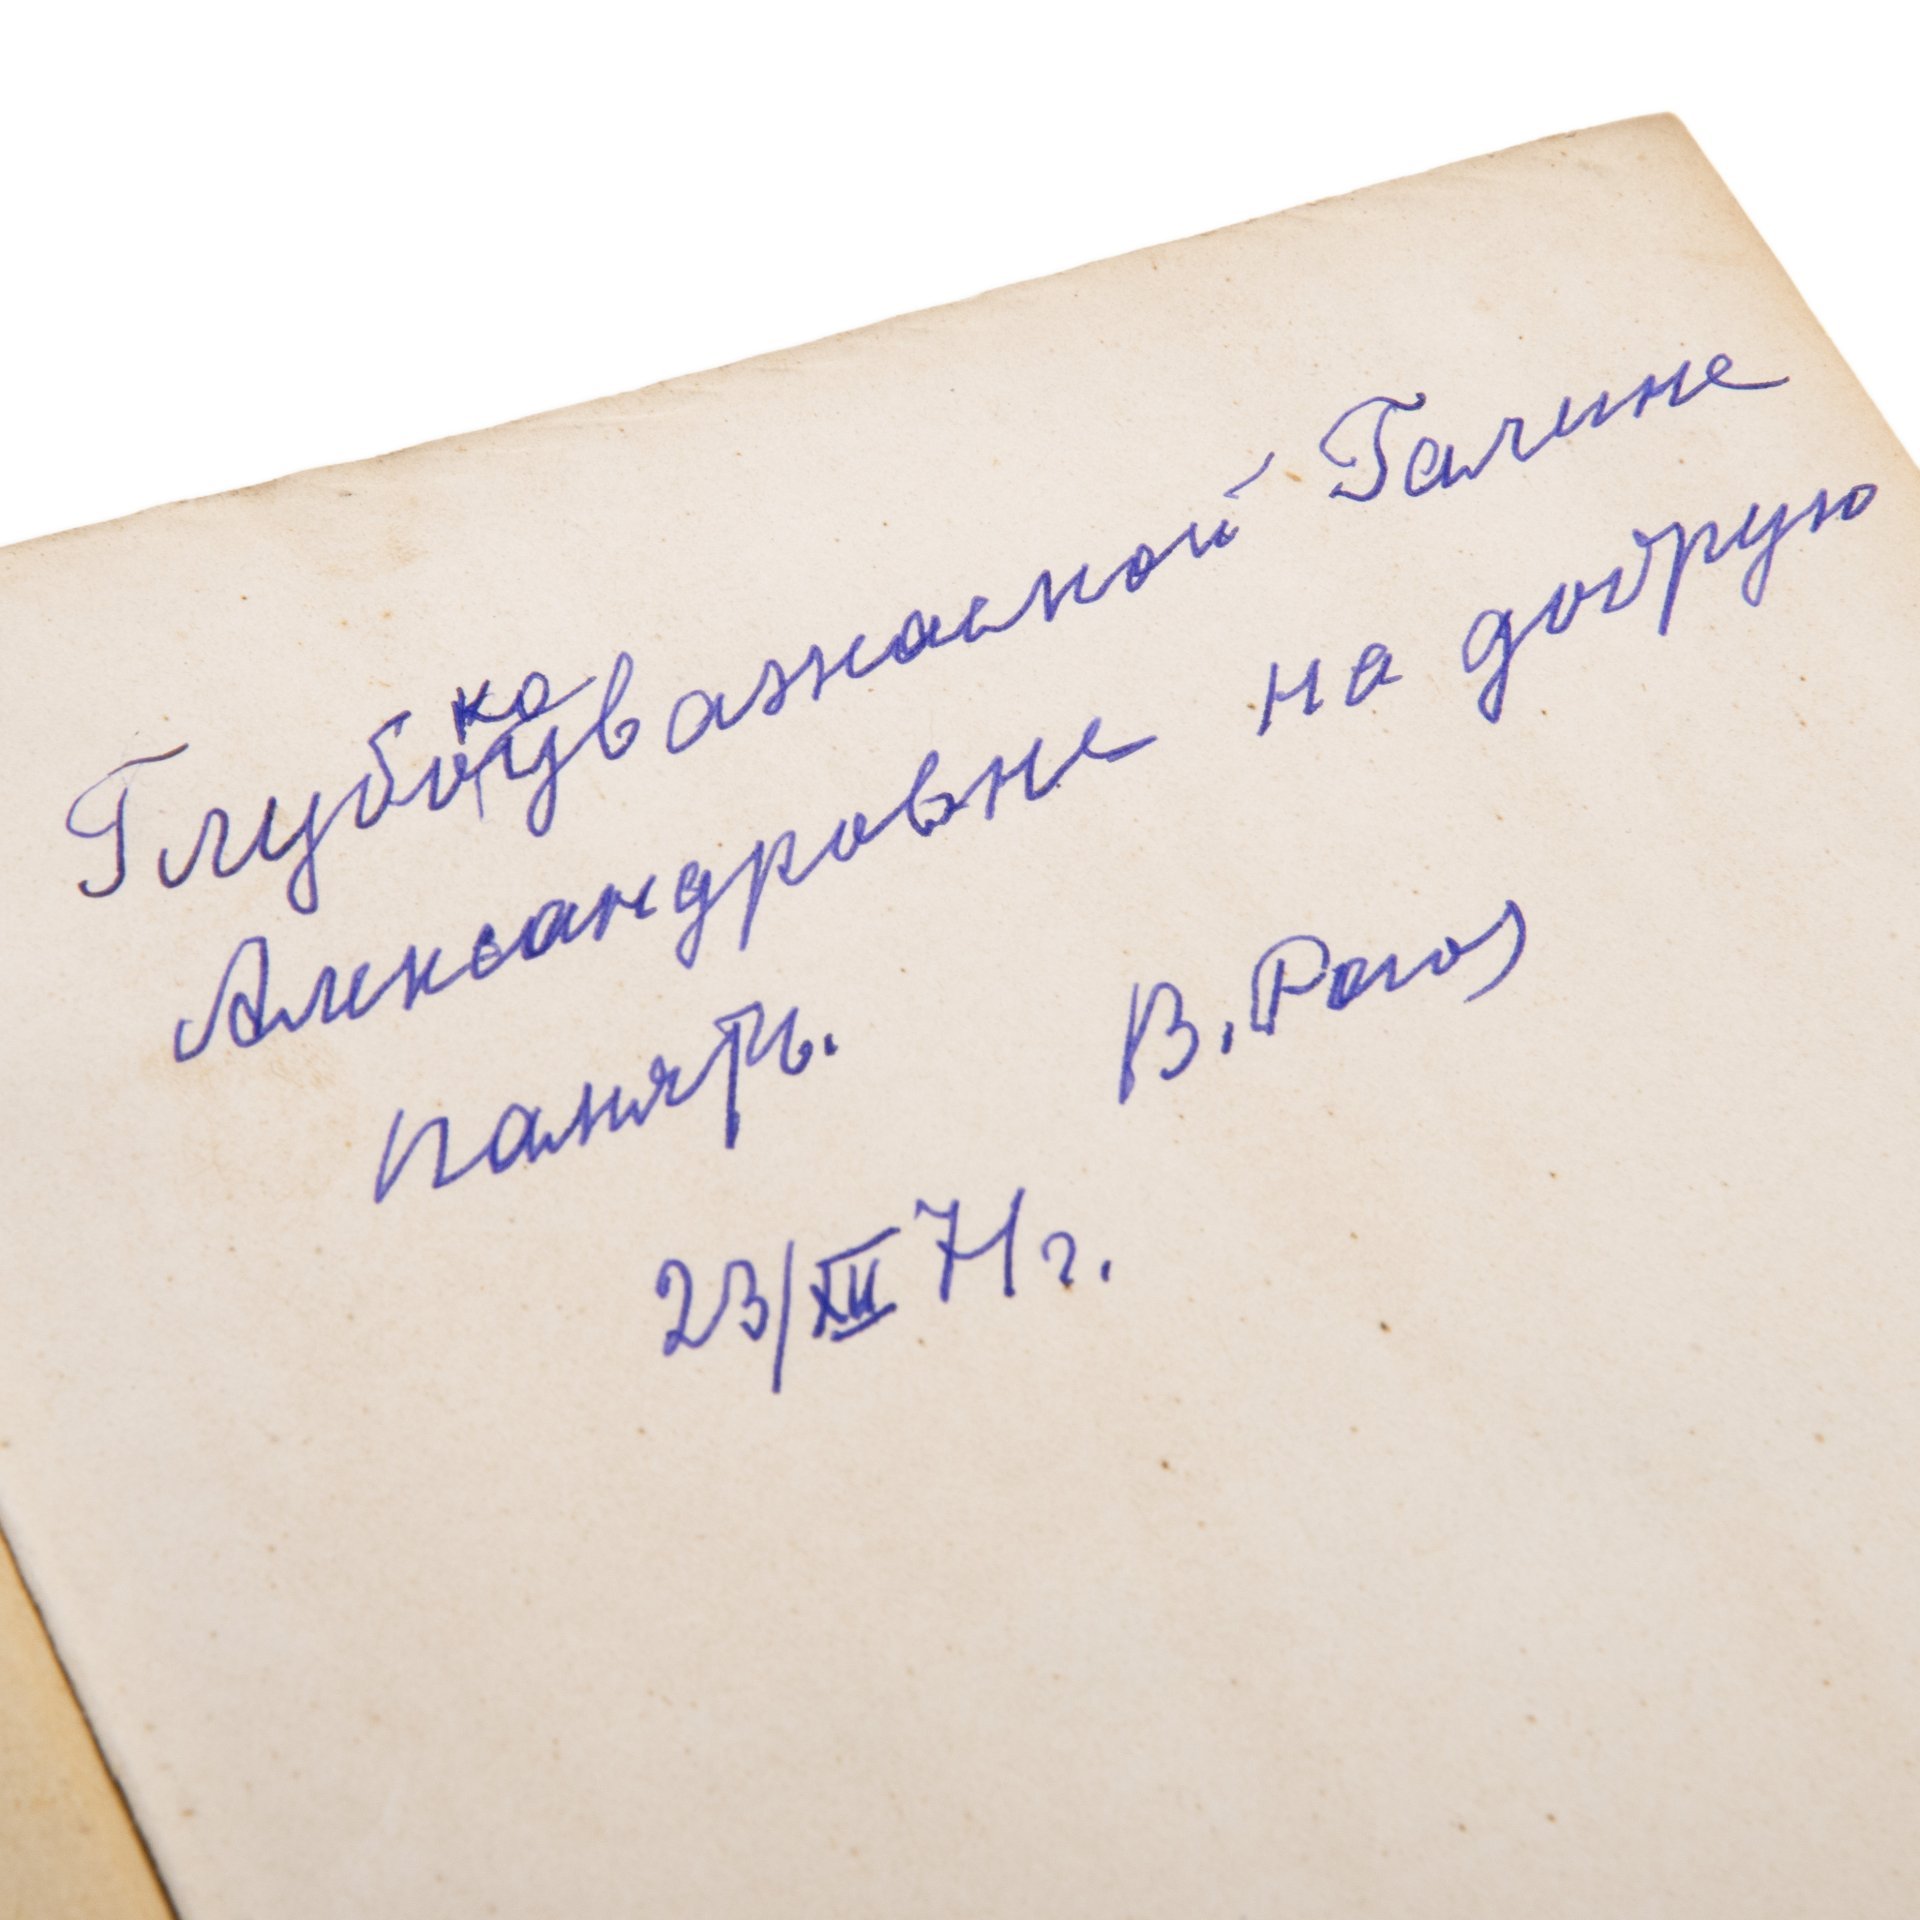 Глубокоуважаемой Галине
Александровне на добрую
память. В. Рогов
23/XII 71 г.